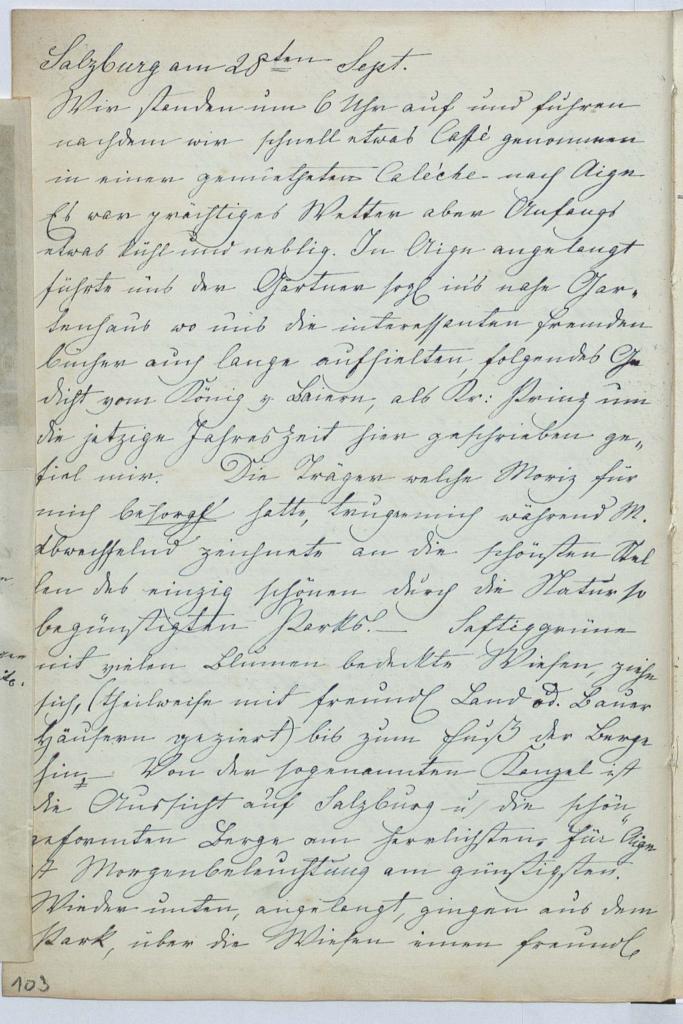 Salzburg am 28ten Sept.
Wir standen um 6 Uhr auf und fuhren
nachdem wir schnell etwas Caffé genommen
in einer gemietheten Calèche nach Aign
Es war prächtiges Wetter aber Anfangs
etwas kühl und neblig. In Aign angelangt
führte uns der Gärtner sogl in's nahe Gar„
tenhaus wo uns die interessanten Fremden
bücher auch lange aufhielten, folgendes Ge
dicht vom König v. Baiern, als Kr: Prinz um
die jetzige Jahreszeit hier geschrieben ge„
fiel mir. Die Träger welche Moriz für
mich besorgt hatte, trugen mich während M.
Abwechselnd zeichnete an die schönsten Stel
len des einzig schönen durch die Natur so
begünstigten Parks! — Saftiggrüne
mit vielen Blumen bedeckte Wiesen, ziehn
sich, (theilweise mit freundl Land od. Bauer
Häusern geziert) bis zum Fuß der Berge
hin. — Von der sogenannten Kanzel ist
die Aussicht auf Salzburg u die schön
geformten Berge am herrlichsten, für Aign
ist Morgenbeleuchtung am günstigsten.
Wieder unten, angelangt, gingen aus dem
Park, über die Wiesen einen freundl
103